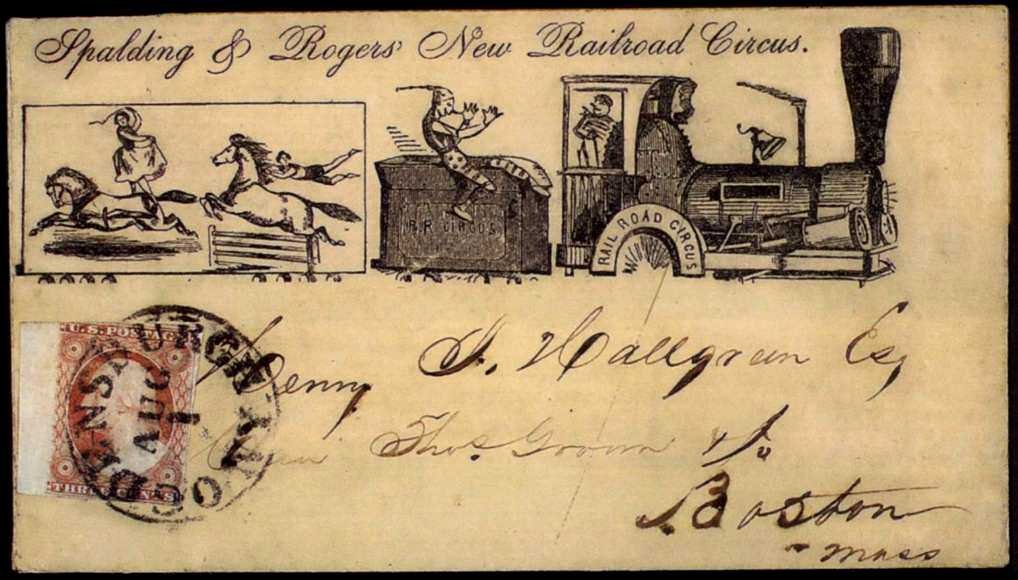 Spalding & Rogers' New Railroad Circus.
R.R. CIRCUS
RAIL ROAD CIRCUS
U.S. POSTAGE
THREE CENTS
OGDENSBURGH N.Y.
AUG
1
Henny J. Hallgreen Esq
Thos Groom & Co
Boston
Mass